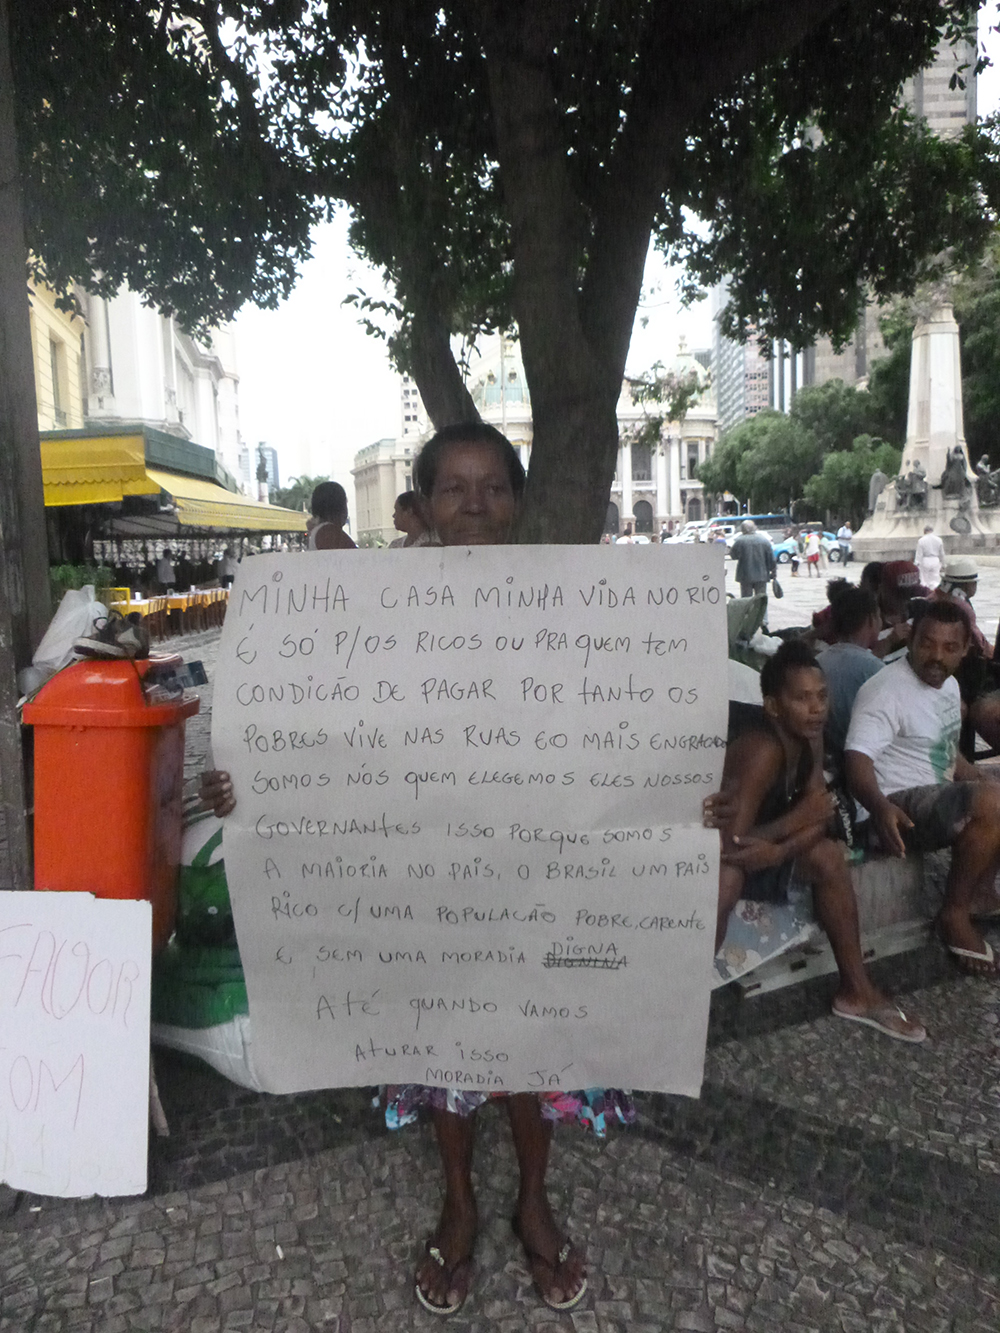 MINHA CASA MINHA VIDA NO RIO
É SÓ P/OS RICOS OU PRA QUEM tEM
CONDICÃO DE PAGAR POR tANTO OS
POBRES VIVE NAS RUAS E O MAIS ENGRACADO
SOMOS NÓS QUEM ELEGEMOS ELES NOSSOS
GOVERNANTES ISSO PORQUE SOMOS
A MAIORIA NO PAIS, O BRASIL UM PAIS
RICO C/UMA POPULACÃO POBRE, CARENTE
E SEM UMA MORADIA DIGNA
AtÉ QUANDO VAMOS
AtURAR ISSO
MORADIA JÁ
FAVOR
TOM